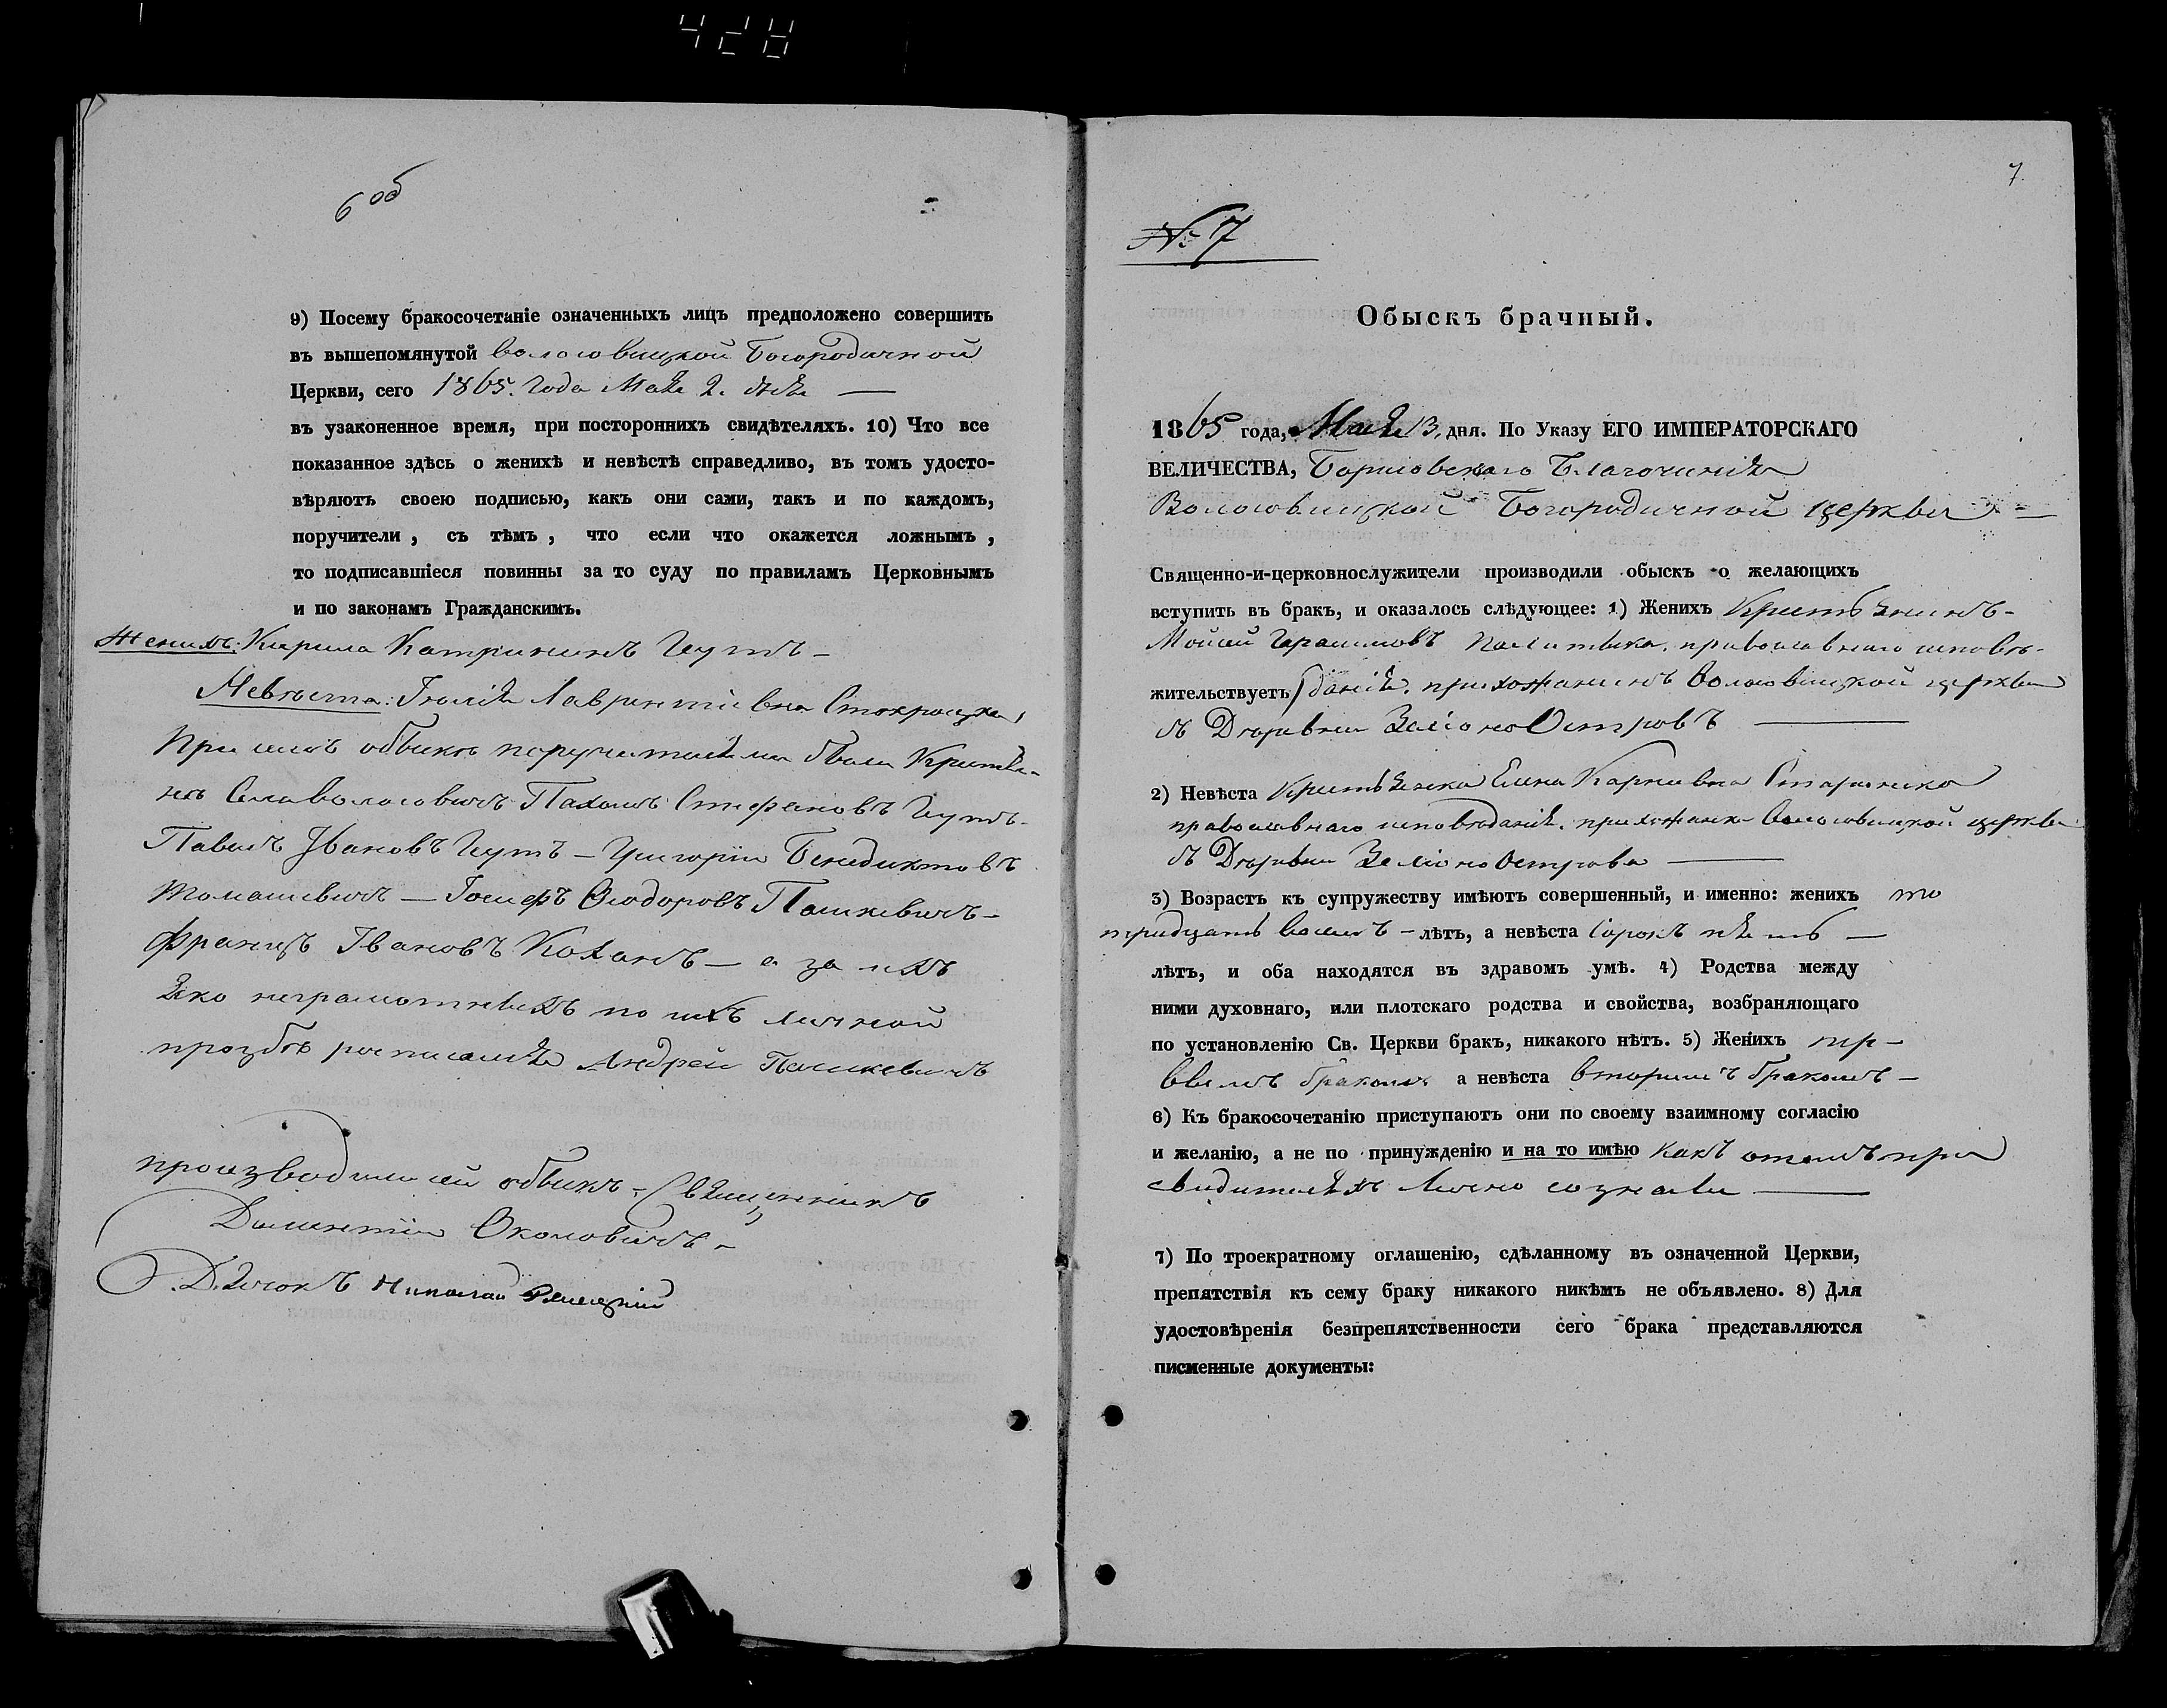 6 об
9) Посему бракосочетаніе означенныхъ лицъ предположено совершить
въ вышепомянутой Волосовицкой Богородичной
Церкви, сего 1865. года Мая 2. дня —
въ узаконенное время, при постороннихъ свидѣтеляхъ. 10) Что все
показанное здѣсь о женихѣ и невѣстѣ справедливо, въ томъ удосто-
вѣряютъ своею подписью, какъ они сами, такъ и по каждомъ,
поручители, съ тѣмъ, что если что окажется ложнымъ,
то подписавшіеся повинны за то суду по правиламъ Церковнымъ
и по законамъ Гражданскимъ.
Женихъ: Кирила Катрининъ Чутъ –
Невѣста: Іюлія Лаврентіевна
При семъ обыскѣ поручителями были Крестья-
не Села Волосовичъ Пахомъ Стефановъ Чутъ –
Павелъ Ивановъ Чутъ – Григорій Бенедиктовъ
Томашевичъ — Іосифъ Ѳіодоровъ Пашкевичъ –
Францъ Ивановъ Коханъ — а за ихъ
яко неграмотныхъ по ихъ личной
прозбѣ росписался Андрей Пашкевичъ
производившій обыскъ – Священникъ
Околовичъ –
Дьячокъ Николай
7.
№ 7
Обыскъ брачный.
1865 года, Мая 13, дня. По Указу ЕГО ИМПЕРАТОРСКАГО
ВЕЛИЧЕСТВА, Борисовскаго Благочинія
Волосовицкой Богородичной церкви
Священно-и-церковнослужители производили обыскъ о желающихъ
вступить въ бракъ, и оказалось слѣдующее: 1) Женихъ Крестьянинъ –
Мойсей Герасимовъ православнаго исповѣ-
жительствуетъ данія, прихожанинъ Волосовицкой церкви
въ Деревни Зеліоно Островъ —
2) Невѣста Крестьянка Елена Карпивна
православнаго исповѣданія, прихожанка Волосовицкой церкви
въ Деревни Зеліоно Острова —
3) Возрастъ къ супружеству имѣютъ совершенный, и именно: женихъ то
тридцать восемь – лѣтъ, а невѣста сорокъ лѣтъ —
лѣтъ, и оба находятся въ здравомъ умѣ. 4) Родства между
ними духовнаго, или плотскаго родства и свойства, возбраняющаго
по установленію Св. Церкви бракъ, никакого нѣтъ. 5) Женихъ пер-
вымъ бракомъ а невѣста вторымъ бракомъ –
6) Къ бракосочетанію приступаютъ они по своему взаимному согласію
и желанію, а не по принужденію и на то имѣю какъ о томъ при
свидителяхъ лично сознали —
7) По троекратному оглашенію, сдѣланному въ означенной Церкви,
препятствія къ сему браку никакого никѣмъ не объявлено. 8) Для
удостовѣренія безпрепятственности сего брака представляются
писменные документы: